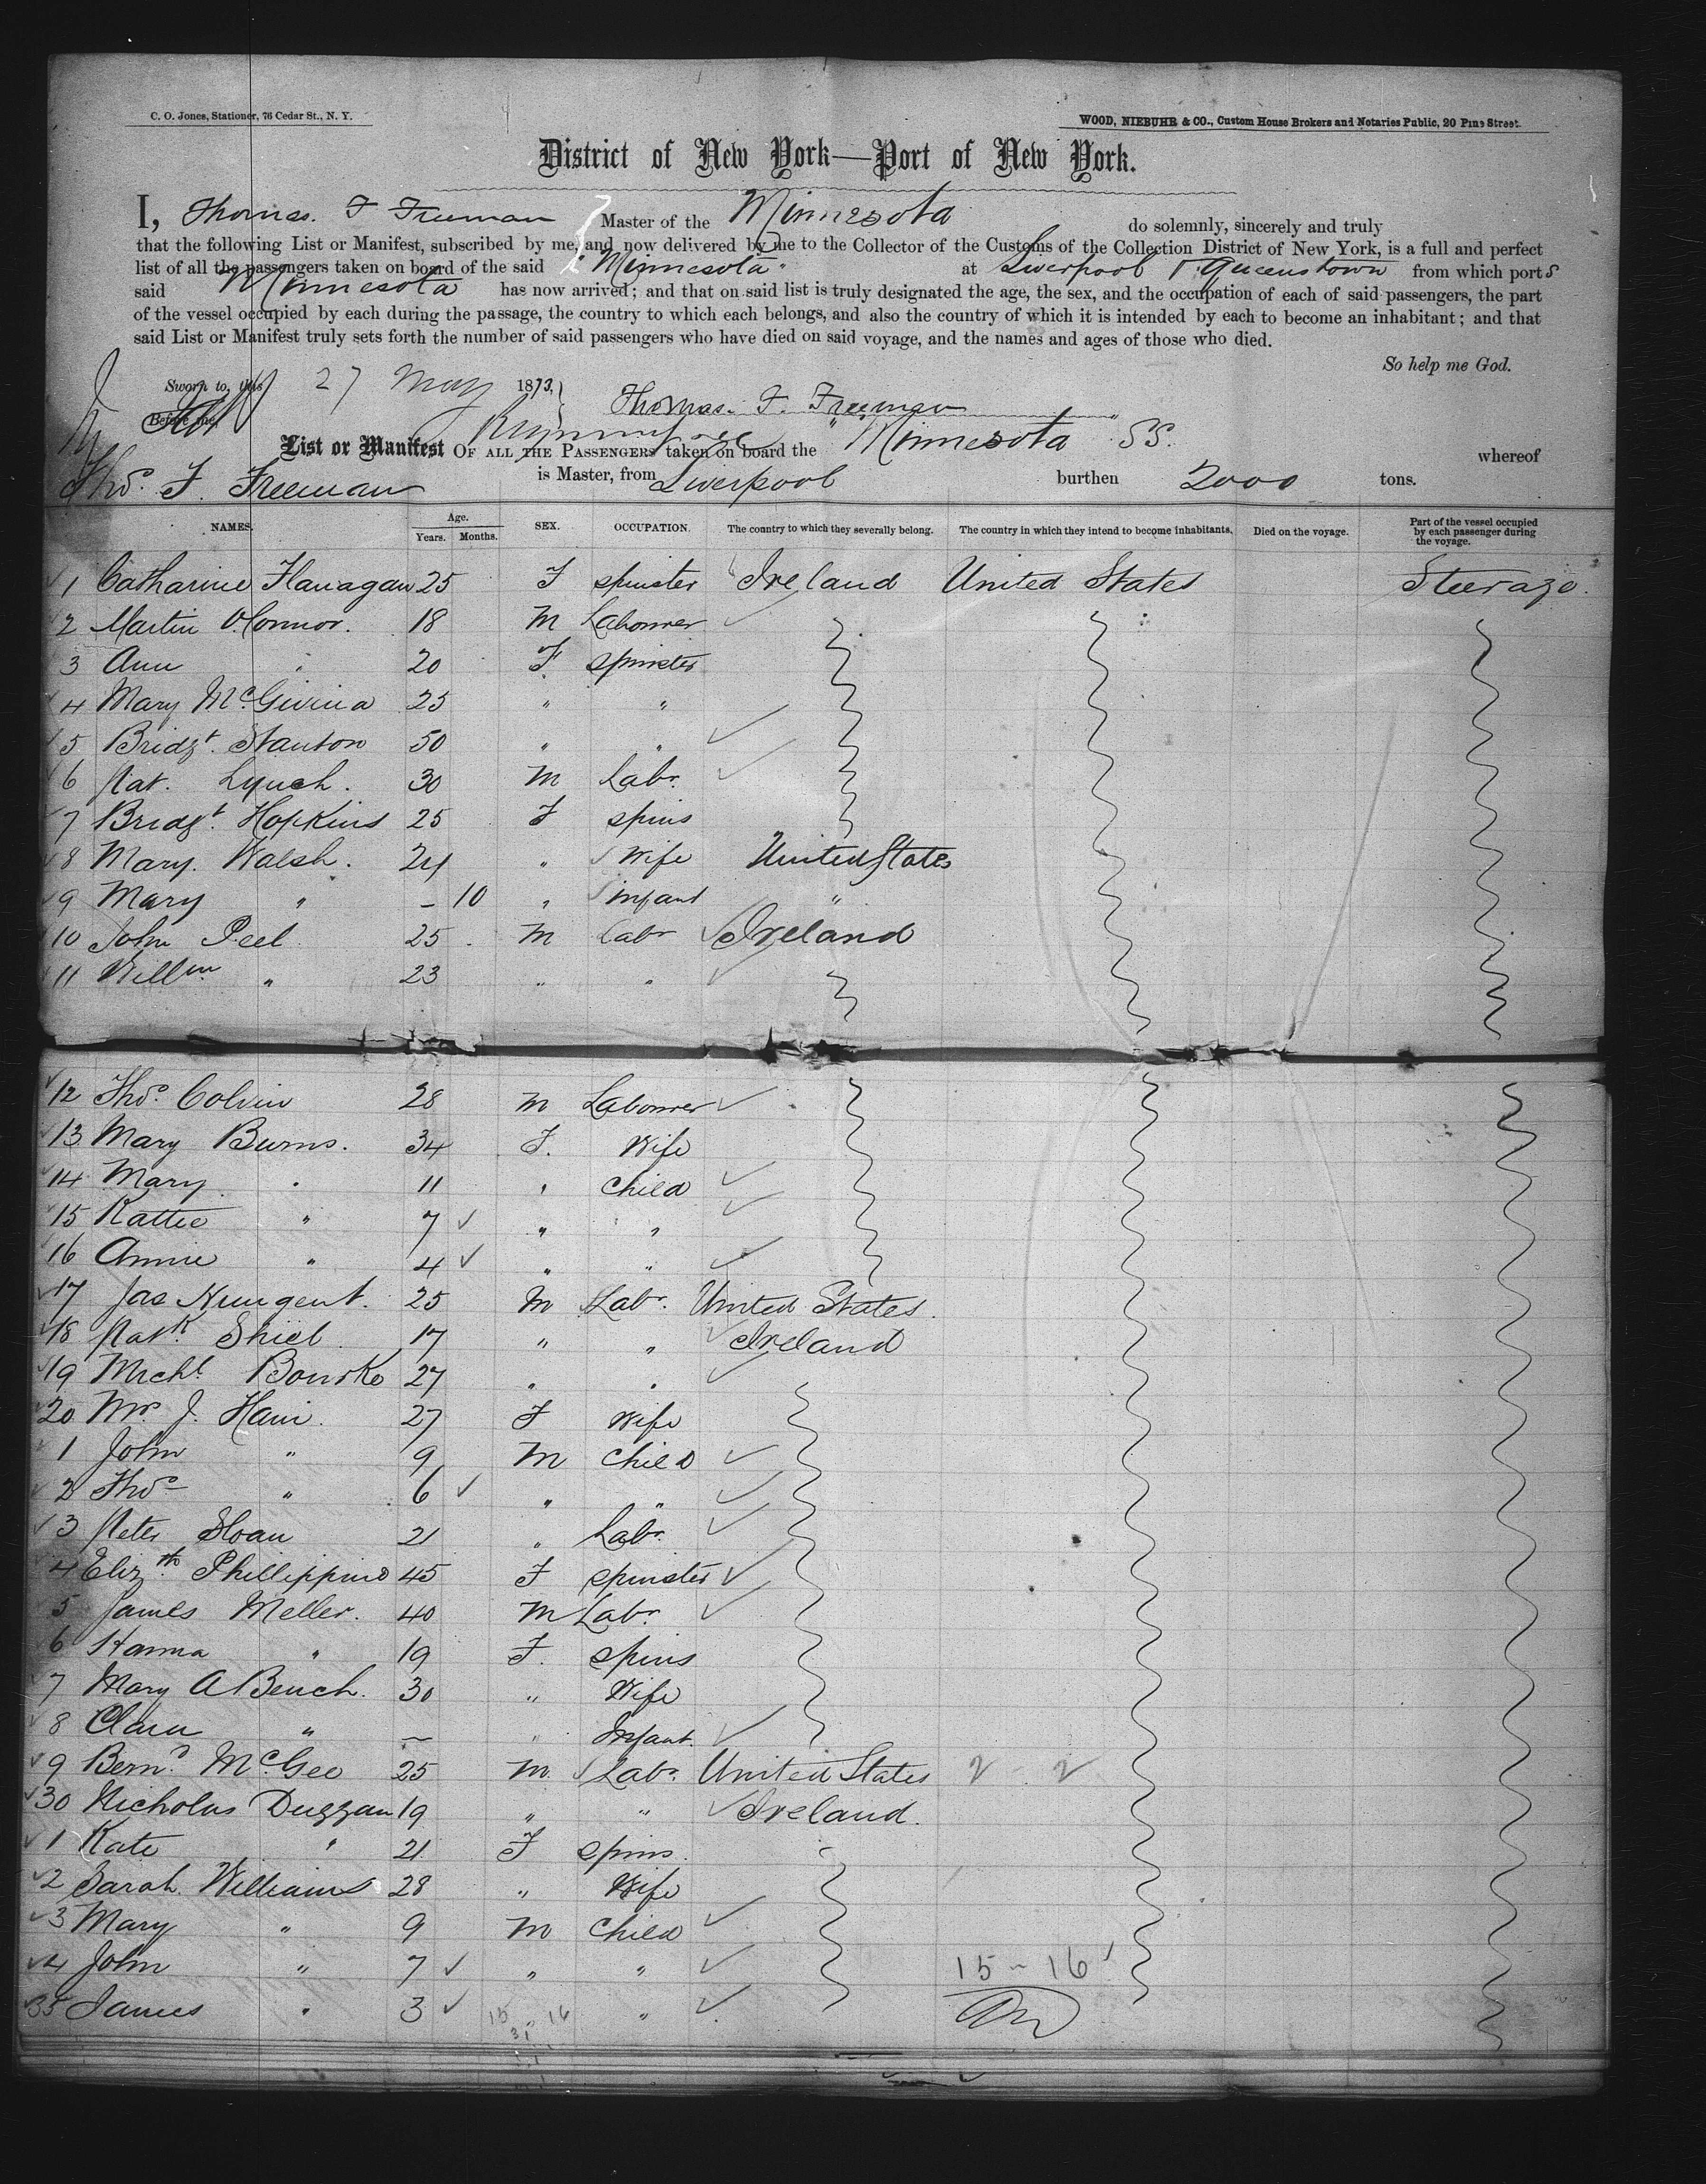 C. O. Jones, Stationer, 76 Cedar St., N. Y.
WOOD, NIEBUHR & CO., Custom House Brokers and Notaries Public, 20 Pine Street.
District of New York—Port of New York.
I, Thomas. F Freeman Master of the Minnesota do solemnly, sincerely and truly
that the following List or Manifest, subscribed by me, and now delivered by me to the Collector of the Customs of the Collection District of New York, is a full and perfect
list of all the passengers taken on board of the said "Minnesota" at Liverpool & Queenstown from which port s
said Minnesota has now arrived; and that on said list is truly designated the age, the sex, and the occupation of each of said passengers, the part
of the vessel occupied by each during the passage, the country to which each belongs, and also the country of which it is intended by each to become an inhabitant; and that
said List or Manifest truly sets forth the number of said passengers who have died on said voyage, and the names and ages of those who died.
So help me God.
Sworn to, this 27 May 1873,
Before me, Thomas. F. Freeman
List or Manifest OF ALL THE PASSENGERS taken on board the "Minnesota" SS. whereof
Thos. F. Freeman is Master, from Liverpool burthen 2000 tons.
NAMES. Age. Years. Months. SEX. OCCUPATION. The country to which they severally belong. The country in which they intend to become inhabitants. Died on the voyage. Part of the vessel occupied by each passenger during the voyage.
1 Catharine Flanagan 25 F spinster Ireland United States Steerage.
2 Martin O'Connor. 18 M Labourer
3 Ann " 20 F spinster
4 Mary McGivina 25 " "
5 Bridgt. Stanton 50 " "
6 Pat. Lynch. 30 M Labr.
7 Bridgt. Hopkins 25 F spins
8 Mary. Walsh. 24 " Wife United States
9 Mary " - 10 " infant "
10 John Peel 25 M labr Ireland
11 Willm " 23 " "
12 Thos. Colvin 28 M Labourer
13 Mary Burns. 34 F. Wife
14 Mary " 11 " Child
15 Kattie " 7 " "
16 Annie " 4 " "
17 Jas Nungent. 25 M Labr. United States.
18 Patk Shiel 17 " " Ireland
19 Michl. Bourke 27 " "
20 Mrs. J. Hani. 27 F Wife
1 John " 9 M Child
2 Thos " 6 " "
3 Peter Sloan 21 " Labr.
4 Elizth. Phillippine 45 F spinster
5 James Meller. 40 M Labr.
6 Hanna " 19 F. spins
7 Mary A Bench. 30 " Wife
8 Clara " - " Infant.
9 Bernd. McGee 25 M. Labr. United States 2 2
30 Nicholas Duggan 19 " " Ireland.
1 Kate " 21 F spins.
2 Sarah. Williams 28 " Wife
3 Mary " 9 M Child
4 John " 7 " "
35 James " 3 " "
15 - 16
15 16
31